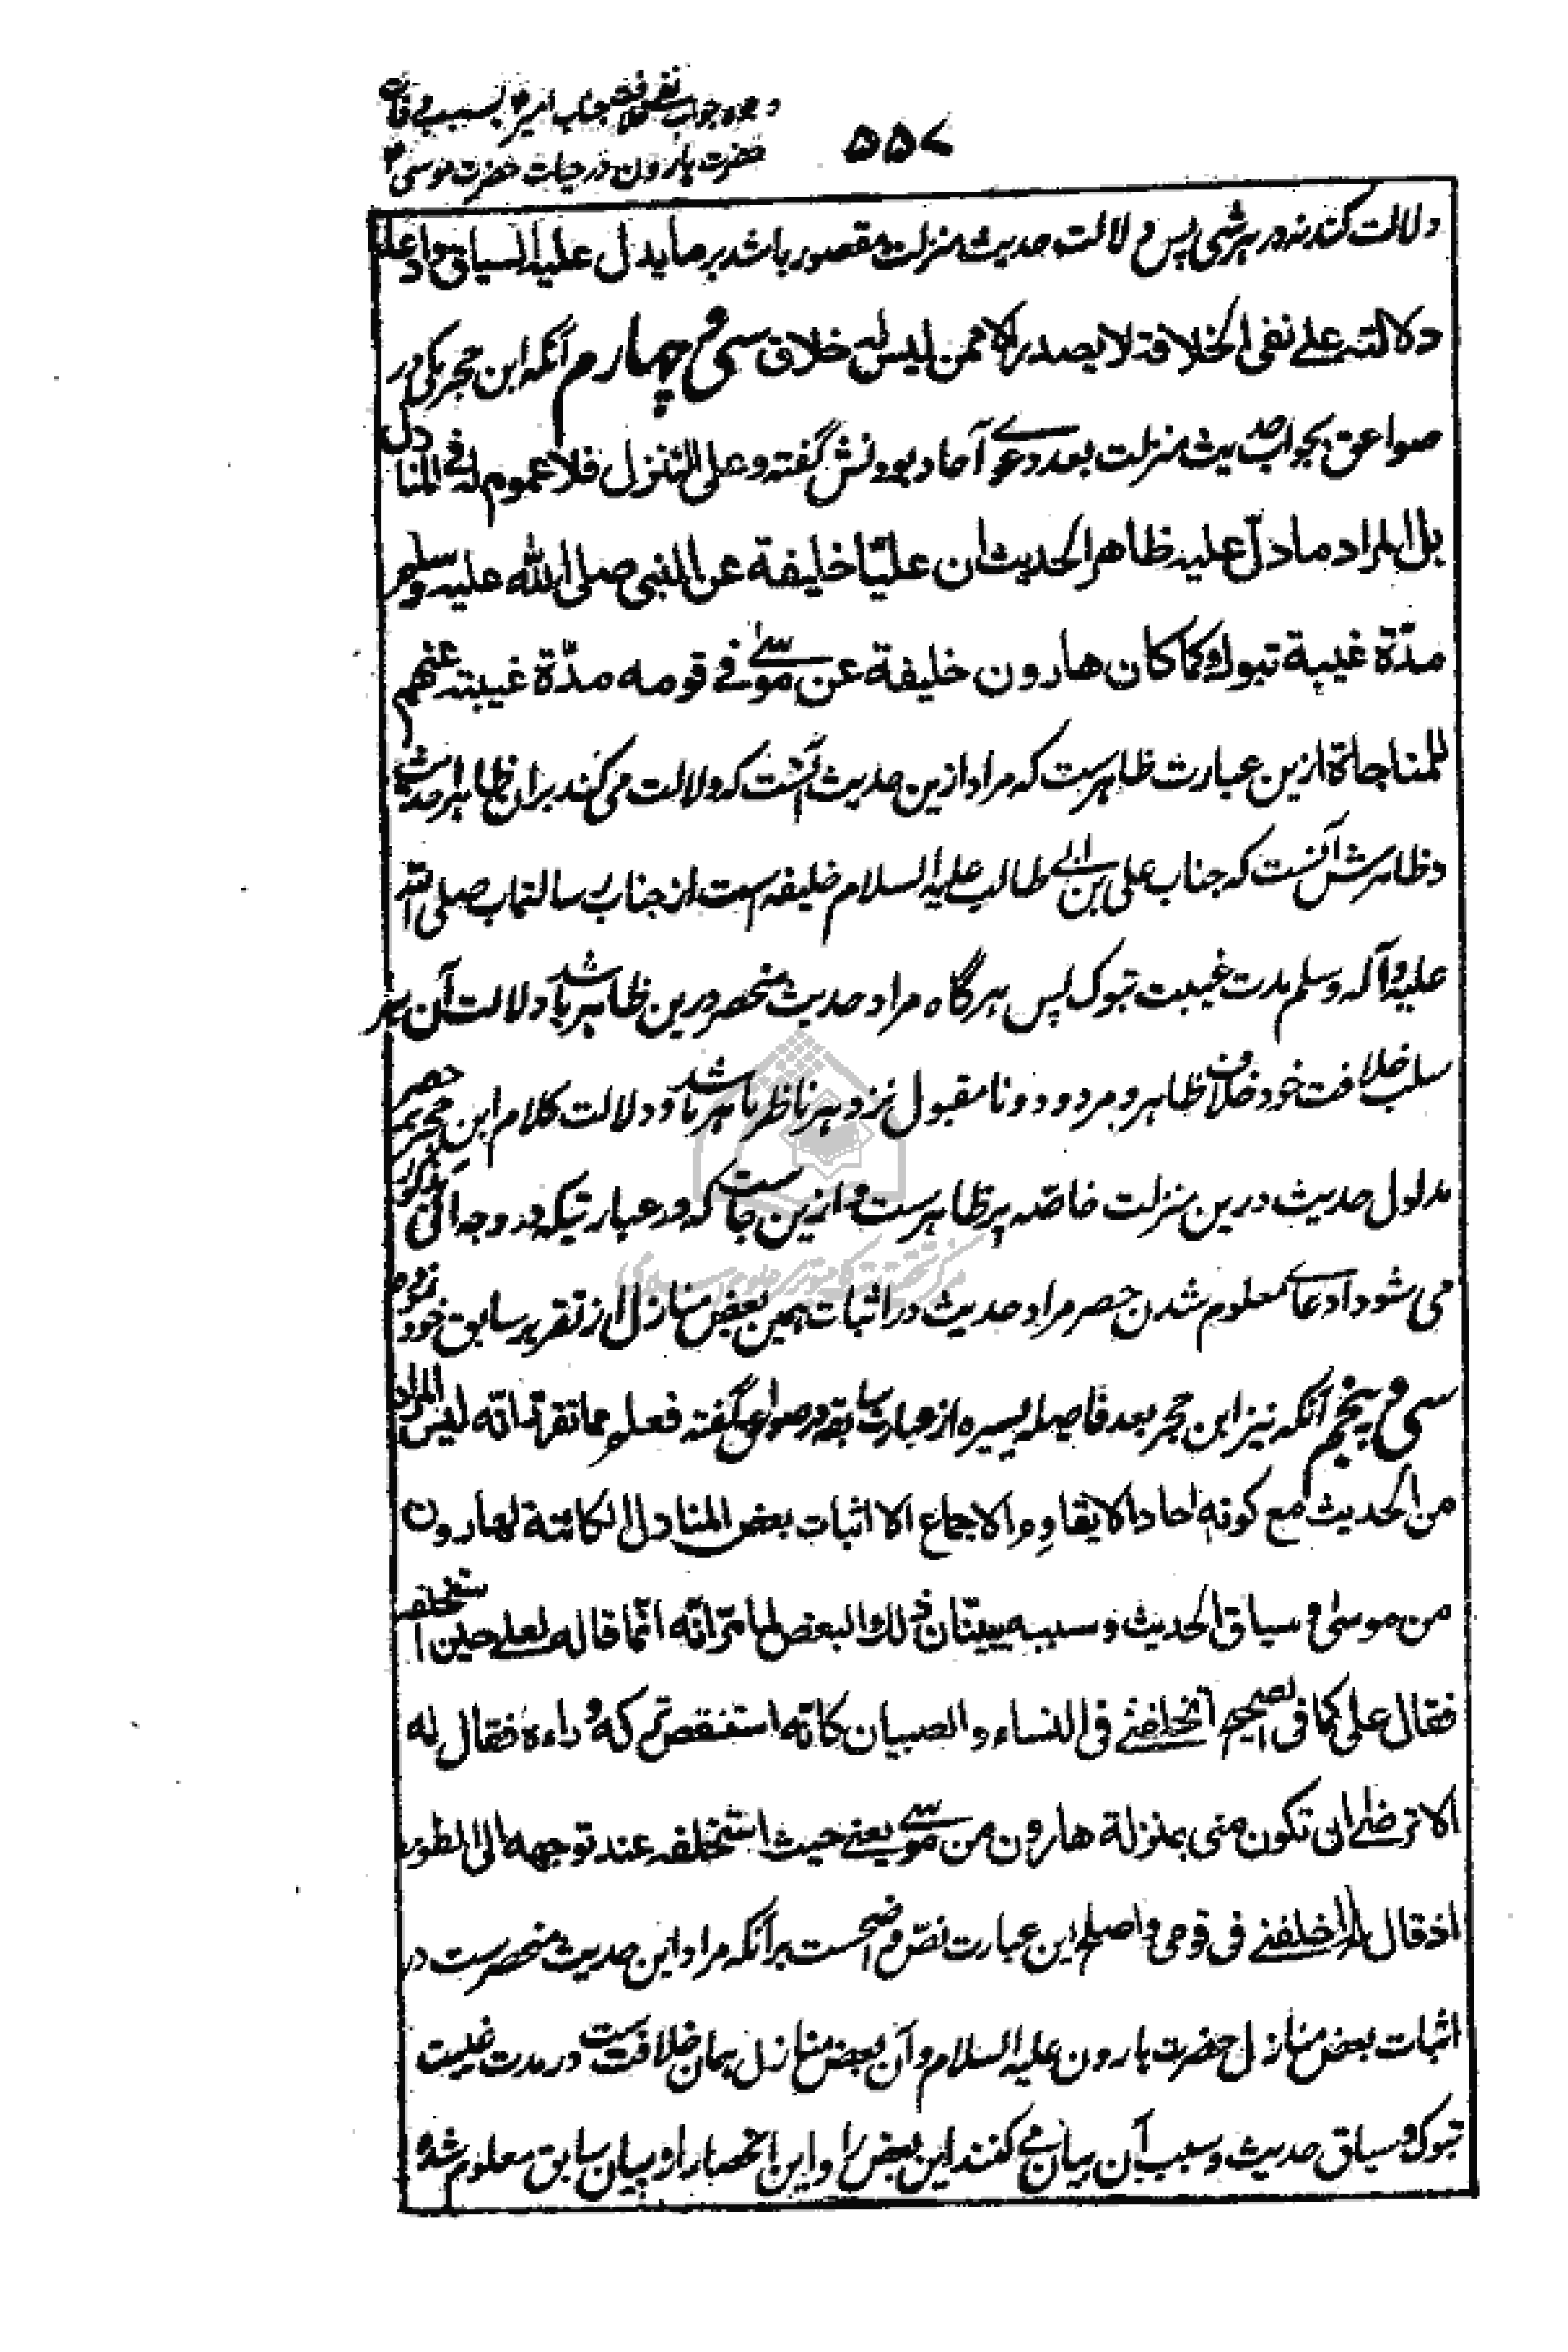 وجوه جواب نفی خلافت جناب امیر۴ بسبب وفات
حضرت هارون در حیات حضرت موسی۴
۵۵۷
دلالت کننده در هر شی پس دلالت حدیث منزلت مقصور باشد بر ما یدل علیه السیاق وادعاء
دلالته علی نفی الخلافة لا یصدر الا ممن لیس له خلاق سی و چهارم آنکه ابن حجر مکی در
صواعق بجواب حدیث منزلت بعد دعوی آحاد بودنش گفته وعلی التنزل فلا عموم له فی المنازل
بل المراد ما دلّ علیه ظاهر الحدیث ان علیّا خلیفة عن النبی صلی الله علیه وسلم
مدّة غیبة تبوك كما كان هارون خلیفة عن موسی فی قومه مدّة غیبته عنهم
للمناجاة ازین عبارت ظاهرست که مراد ازین حدیث آنست که دلالت می کند بران ظاهر حدیث
و ظاهرش آنست که جناب علی بن ابی طالب علیه السلام خلیفه است از جناب رسالتماب صلی الله
علیه و آله وسلم مدت غیبت تبوک پس هرگاه مراد حدیث منحصر درین ظاهر باشد دلالت آن بر
سلب خلافت خود خلاف ظاهر و مردود و نامقبول نزد هر ناظر ماهر باشد و دلالت کلام ابن حجر بر حصر
مدلول حدیث درین منزلت خاصّه پر ظاهرست و ازین جاست که در عبارتیکه در وجه آتی مذکور
می شود ادعای معلوم شدن حصر مراد حدیث در اثبات همین بعض منازل از تقریر سابق خود نموده
سی و پنجم آنکه نیز ابن حجر بعد فاصله یسیره از عبارت سابقه در صواعق گفته فعلم مما تقرّر انّه لیس المراد
من الحدیث مع كونه احادا لا یقاوم الاجماع الا اثبات بعض المنازل الكائنة لهارون
من موسی و سیاق الحدیث وسببه یبیّنان ذلك البعض لما مرّ انّه انّما قاله لعلی حین استخلفه
فقال علی كما فی الصحیح اتخلفنی فی النساء والصبیان كانّه استنقص تركه وراءه فقال له
الا ترضی ان تكون منی بمنزلة هارون من موسی یعنی حیث استخلفه عند توجهه الی الطور
اذ قال له اخلفنی فی قومی واصلح این عبارت نصّ واضحست برآنکه مراد این حدیث منحصرست در
اثبات بعض منازل حضرت هارون علیه السلام و آن بعض منازل همان خلافتست در مدت غیبت
تبوک و سیاق حدیث و سبب آن بیان می کنند این بعض را و این انحصار از بیان سابق معلوم شده